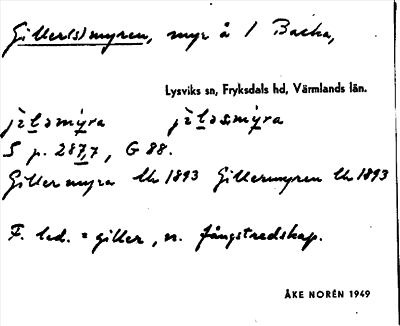 Giller(s)myren, myr å 1 Backa,
Lysviks sn, Fryksdals hd, Värmlands län.
jìləmy̆ra jìləsmy̆ra
S p. 287,7, G 88.
Gillermyra Uk 1893 Gillermyren Uk 1893
F. led. = giller, n. fångstredskap.
ÅKE NORÉN 1949